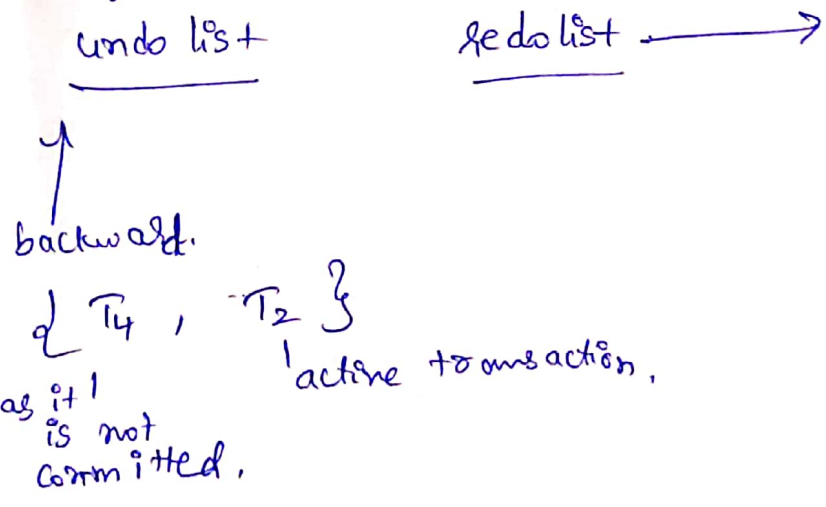 undo list redo list
backward.
{ T4 , T2 }
active transaction,
as it
is not
committed,